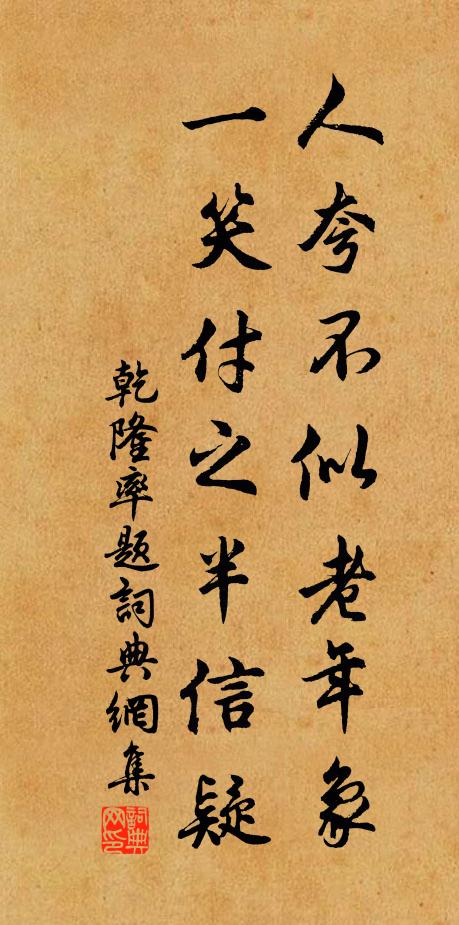 人夸不似老年象
一笑付之半信疑
乾隆率题詞典網集
詞典網印